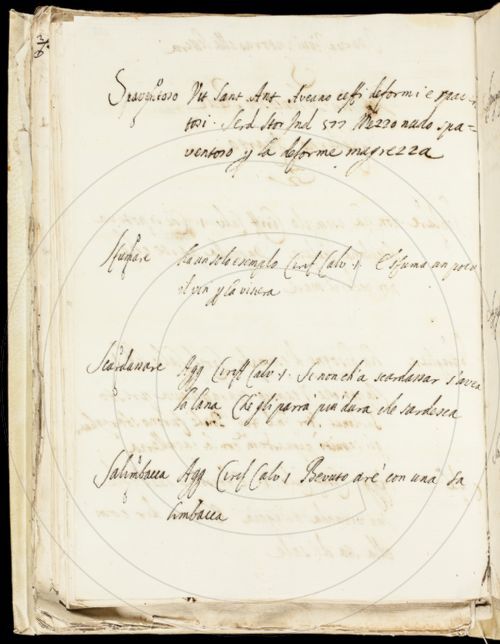 Spaventoso Vit Sant Ant. Aveano ceffi deformi e spaven-
tosi. Serd Stor Ind 577 Mezzo nudo spa=
ventoso p la deforme magrezza
Sfumare Ha un solo esemplo Ciriff Calv. 1. E sfuma un poco
il vin p la visera
Scardassare Agg Ciriff Calv. 1. Se non ch'a scardassar s'avea
la lana Che gli parrà piu dura che sardesca
Salimbacca Agg Ciriff Calv 1 Bevuto are' con una Sa
limbacca